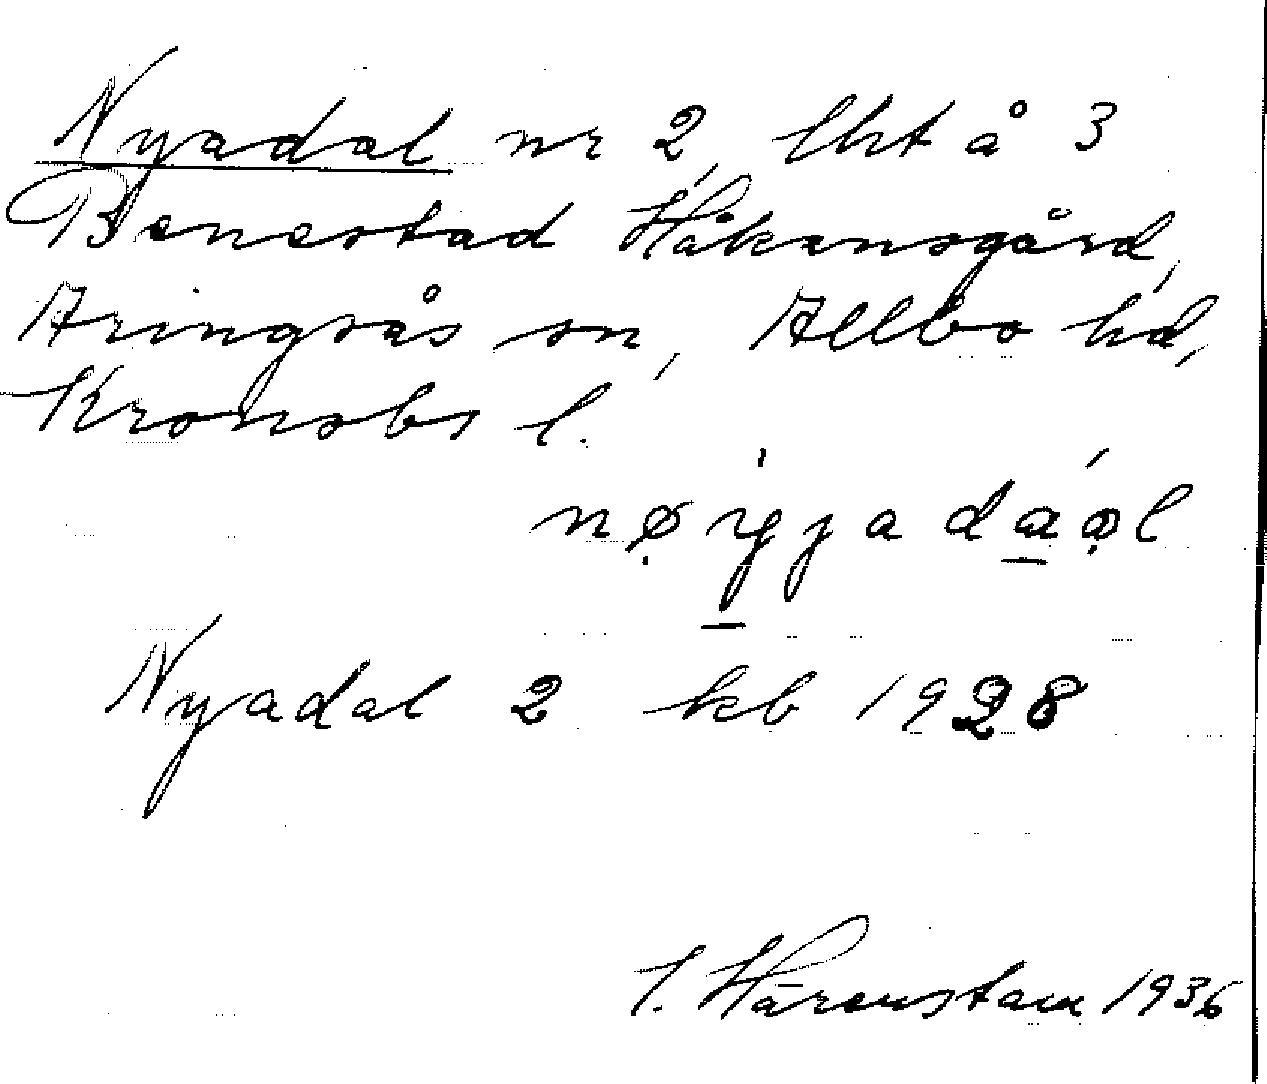 Nyadal nr 2, lht å 3
Benestad Håkansgård,
Aringsås sn, Allbo hd,
Kronobs l.
nø̣y̠jadáọl
Nyadal 2 kb 1928
Härenstam 1936